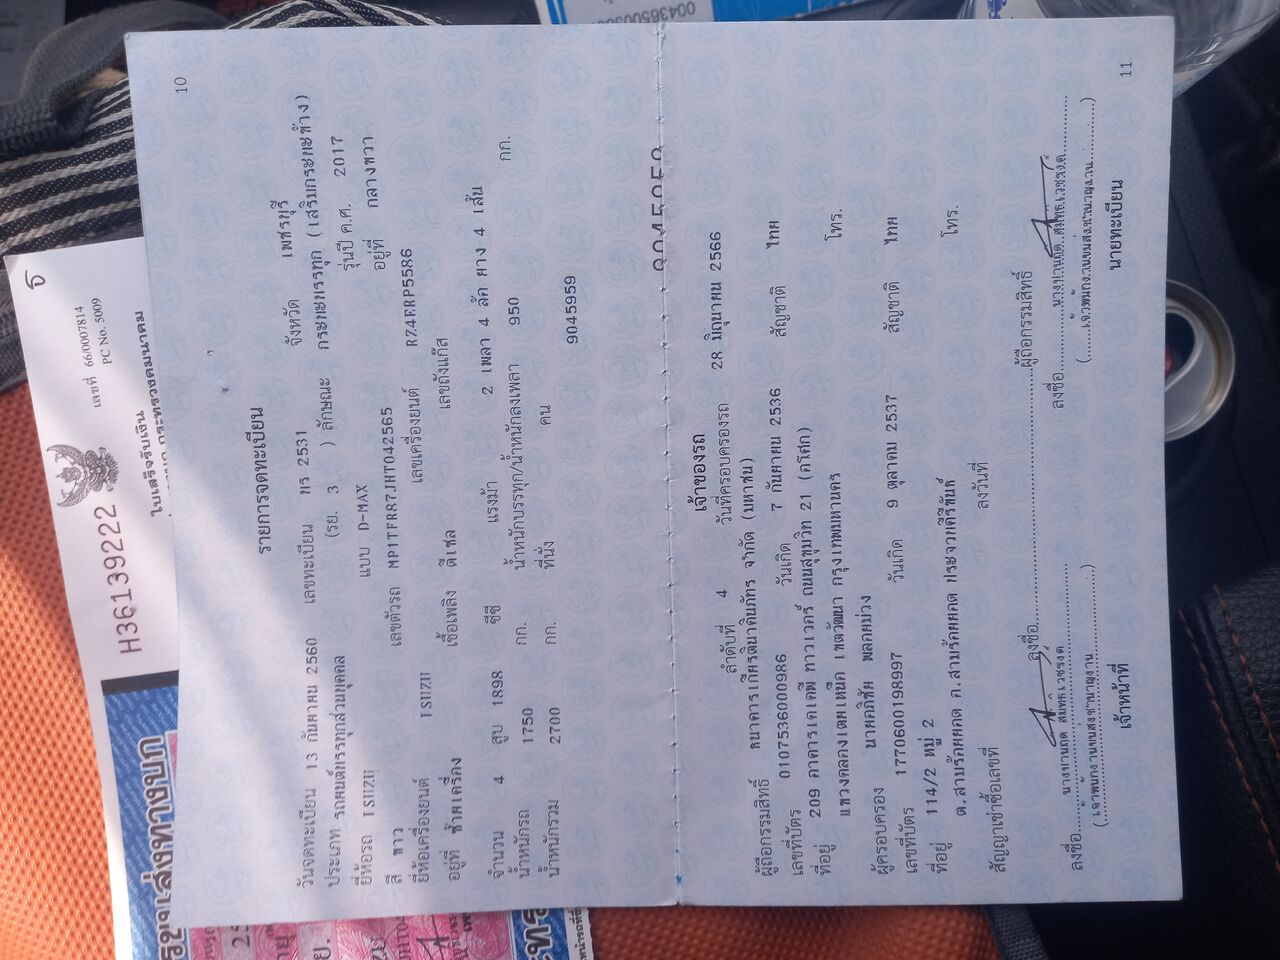 10
รายการจดทะเบียน
วันจดทะเบียน 13 กันยายน 2560 เลขทะเบียน ทร 2531 จังหวัด เพชรบุรี
ประเภท รถยนต์บรรทุกส่วนบุคคล (รย. 3 ) ลักษณะ กระบะบรรทุก (เสริมกระบะข้าง)
ยี่ห้อรถ ISUZU แบบ D-MAX รุ่นปี ค.ศ. 2017
สี ขาว เลขตัวรถ MP1TFR87JHT042565 อยู่ที่ กลางขวา
ยี่ห้อเครื่องยนต์ ISUZU เลขเครื่องยนต์ RZ4ERP5586
อยู่ที่ ซ้ายเครื่อง เชื้อเพลิง ดีเซล เลขถังแก๊ส
จำนวน 4 สูบ 1898 ซีซี แรงม้า 2 เพลา 4 ล้อ ยาง 4 เส้น
น้ำหนักรถ 1750 กก. น้ำหนักบรรทุก/น้ำหนักลงเพลา 950 กก.
น้ำหนักรวม 2700 กก. ที่นั่ง คน
9045959
เจ้าของรถ
ลำดับที่ 4 วันที่ครอบครองรถ 28 มิถุนายน 2566
ผู้ถือกรรมสิทธิ์ ธนาคารเกียรตินาคินภัทร จำกัด (มหาชน)
เลขที่บัตร 0107536000986 วันเกิด 7 กันยายน 2536 สัญชาติ ไทย
ที่อยู่ 209 อาคารเคเคพี ทาวเวอร์ ถนนสุขุมวิท 21 (อโศก)
แขวงคลองเตยเหนือ เขตวัฒนา กรุงเทพมหานคร โทร.
ผู้ครอบครอง นายอภิชัย พลอยม่วง
เลขที่บัตร 1770600198997 วันเกิด 9 ตุลาคม 2537 สัญชาติ ไทย
ที่อยู่ 114/2 หมู่ 2
ต.สามร้อยยอด อ.สามร้อยยอด ประจวบคีรีขันธ์ โทร.
สัญญาเช่าซื้อเลขที่ ลงวันที่
ลงชื่อ ผู้ถือกรรมสิทธิ์
ลงชื่อ ลงชื่อ
(เจ้าพนักงานขนส่งชำนาญงาน) (เจ้าพนักงานขนส่งชำนาญงาน)
เจ้าหน้าที่ นายทะเบียน
11
ธ
เลขที่ 66/0007814
PC No. 5009
H36139222
ใบเสร็จรับเงิน
กระทรวงคมนาคม